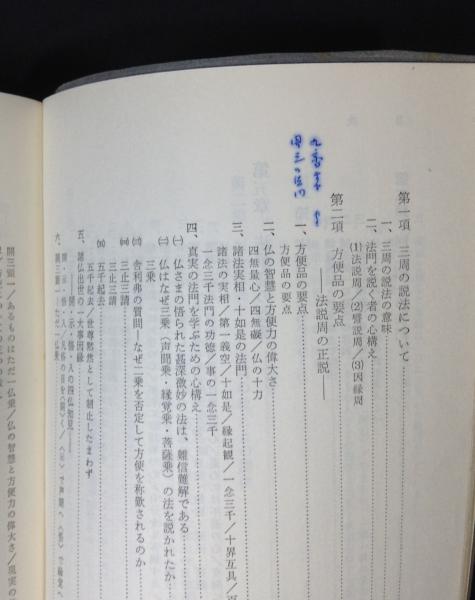 第一項 三周の説法について
一、三周の説法の意味
二、法門を説く者の心構え
(1)法説周/(2)譬説周/(3)因縁周
第二項 方便品の要点
――法説周の正説――
一、方便品の要点
方便品の要点
二、仏の智慧と方便力の偉大さ
四無量心/四無礙/仏の十力
三、諸法実相・十如是の法門
諸法の実相/第一義空/十如是/縁起観/一念三千/十界互具/
一念三千法門の功徳/事の一念三千
四、真実の法門を学ぶための心構え
㈠ 仏さまの悟られた甚深微妙の法は、難信難解である
㈡ 仏はなぜ三乗(声聞乗・縁覚乗・菩薩乗)の法を説かれたか
三乗
㈢ 舎利弗の質問、なぜ二乗を否定して方便を称歎されるのか
㈣ 三止三請
三止三請
㈤ 五千起去
五千起去/世尊黙然として制止したまわず
五、諸仏出世の一大事因縁
開・示・悟・入の四仏知見
開三顕一/あるものはただ一仏乗/仏の智慧と方便力の偉大さ/現実の